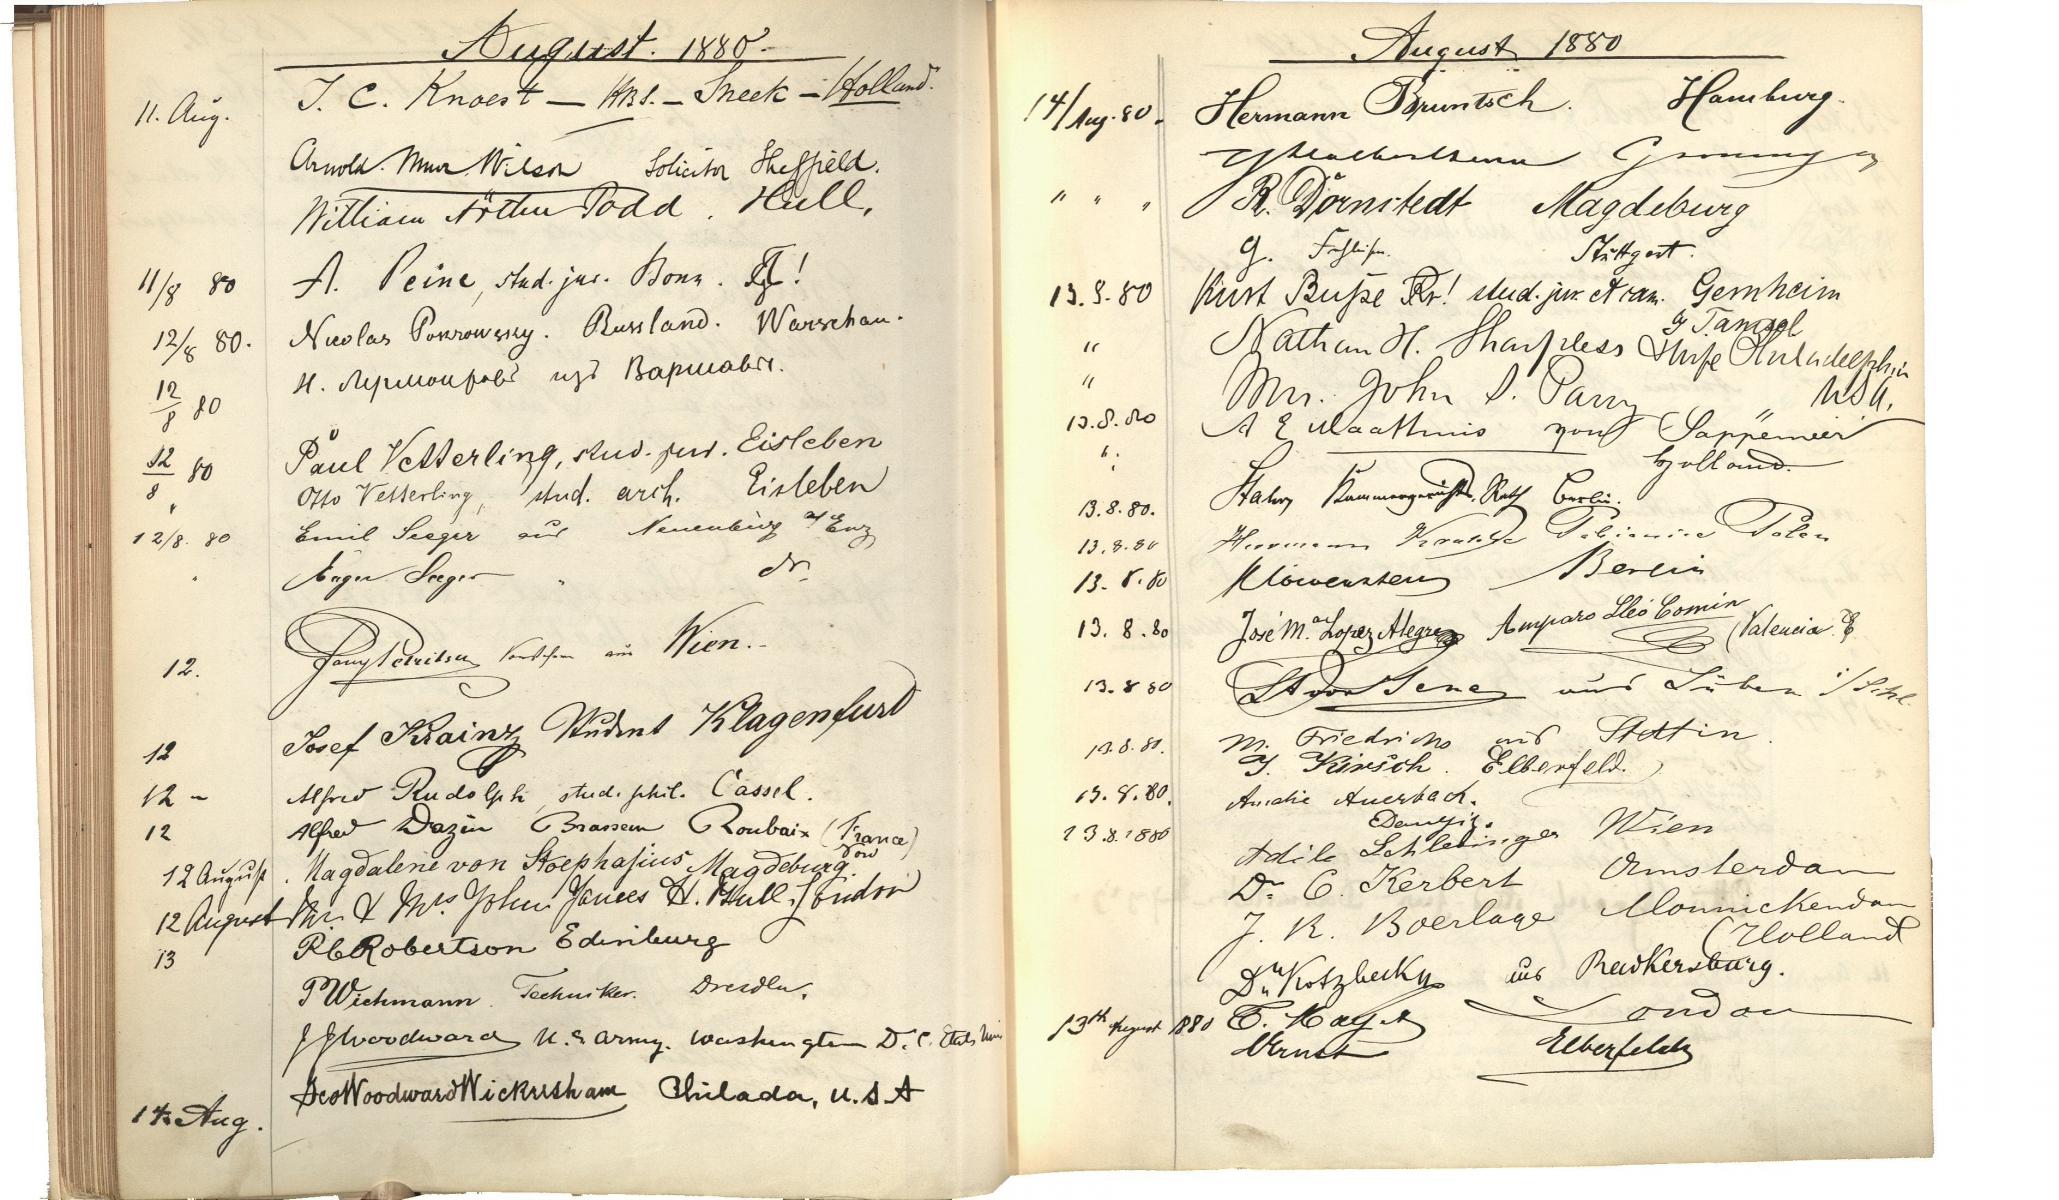 August. 1880.
11. Aug. J. C. Knoest — HBS. — Sneek — Holland.
Arnold Muir Wilson Solicitor Sheffield.
William Arthur Todd. Hull,
11/8 80 A. Peine, stud. jur. Bonn.
12/8 80. Nicolas Pokrowsky. Russland. Warschau.
12/8 80 Н. изъ Варшавы.
12/8 80 Paul Vetterling, stud. jur. Eisleben
" Otto Vetterling, stud. arch. Eisleben
12/8. 80 Emil Seeger aus Neuenbürg a/ Enz
" Seeger " do.
12. aus Wien.
12 Josef Krainz Student Klagenfurt
12 – Alfred Rudolph, stud. phil. Cassel.
12 Alfred Dazin Brasseur Roubaix (France)
12 August. Magdalene von Stoephasius Magdeburg.
12 August Mr. & Mrs John James H. Hull. London
13 Robertson Edinburg
P Wichmann. Techniker. Dresden.
J J Woodward U. S. Army. Washington D. C. Etats Unis
Geo Woodward Wickersham Philada, U. S. A
14 Aug.
August 1880
14/Aug. 80. Hermann Hamburg.
Groningen
" " " R. Dörnstedt Magdeburg
G. Stuttgart.
13. 8. 80 Kurt Buße stud. jur. et cam. Gernheim
b/ Tamsel
" Nathan H. Sharpless & Wife Philadelphia
" Mrs. John S. Parry " USA.
13. 8. 80 A E Maathuis von Sappemeer
Holland.
13. 8. 80. Kammergerichts. Rath Berlin.
13. 8. 80 Herrmann Pabianice Polen
13. 8. 80 Löwenstein Berlin
13. 8. 80 José M.a Lopez Alegre Amparo Lleó Comin (Valencia E
13. 8 80 aus Lüben i/Schl.
13. 8. 80. M. Friedrichs aus Stettin.
J. Kirsch. Elberfeld.
13. 8. 80. Amalie Auerbach.
Danzig.
13. 8. 1880 Adile Schlesinger Wien
Dr. C. Kerbert Amsterdam
J. K. Boerlage Monnickendam
(Holland
Dr. Kotzbecky aus Radkersburg.
13th August 1880 London
Ernst Elberfeld